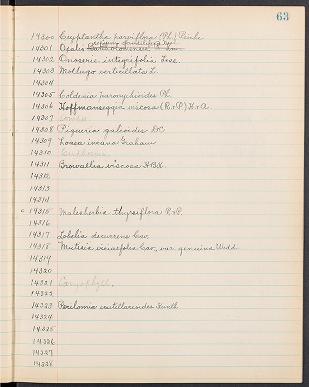 63
14300 Cryptantha parviflora (Ph.) Reiche
14301 Oxalis
14302 Onoseris integrifolia Less.
14303 Mollugo verticillata L.
14304
14305 Coldenia paronychioides Ph.
14306 Hoffmanseggia viscosa (R.+P.) H.+A.
14307
14308 Piqueria galioides DC
14309 Loasa incana Graham
14310 Euphorbia
14311 Browallia viscosa HBK.
14312
14313
14314
14315 Malesherbia thyrsiflora R.+P.
14316
14317 Lobelia decurrens Cav.
14318 Mutisia viciaefolia Cav. var. genuina Wedd.
14319
14320
14321 Caryophyll.
14322
14323 Perilomia scutellarioides Kunth
14324
14325
14326
14327
14328